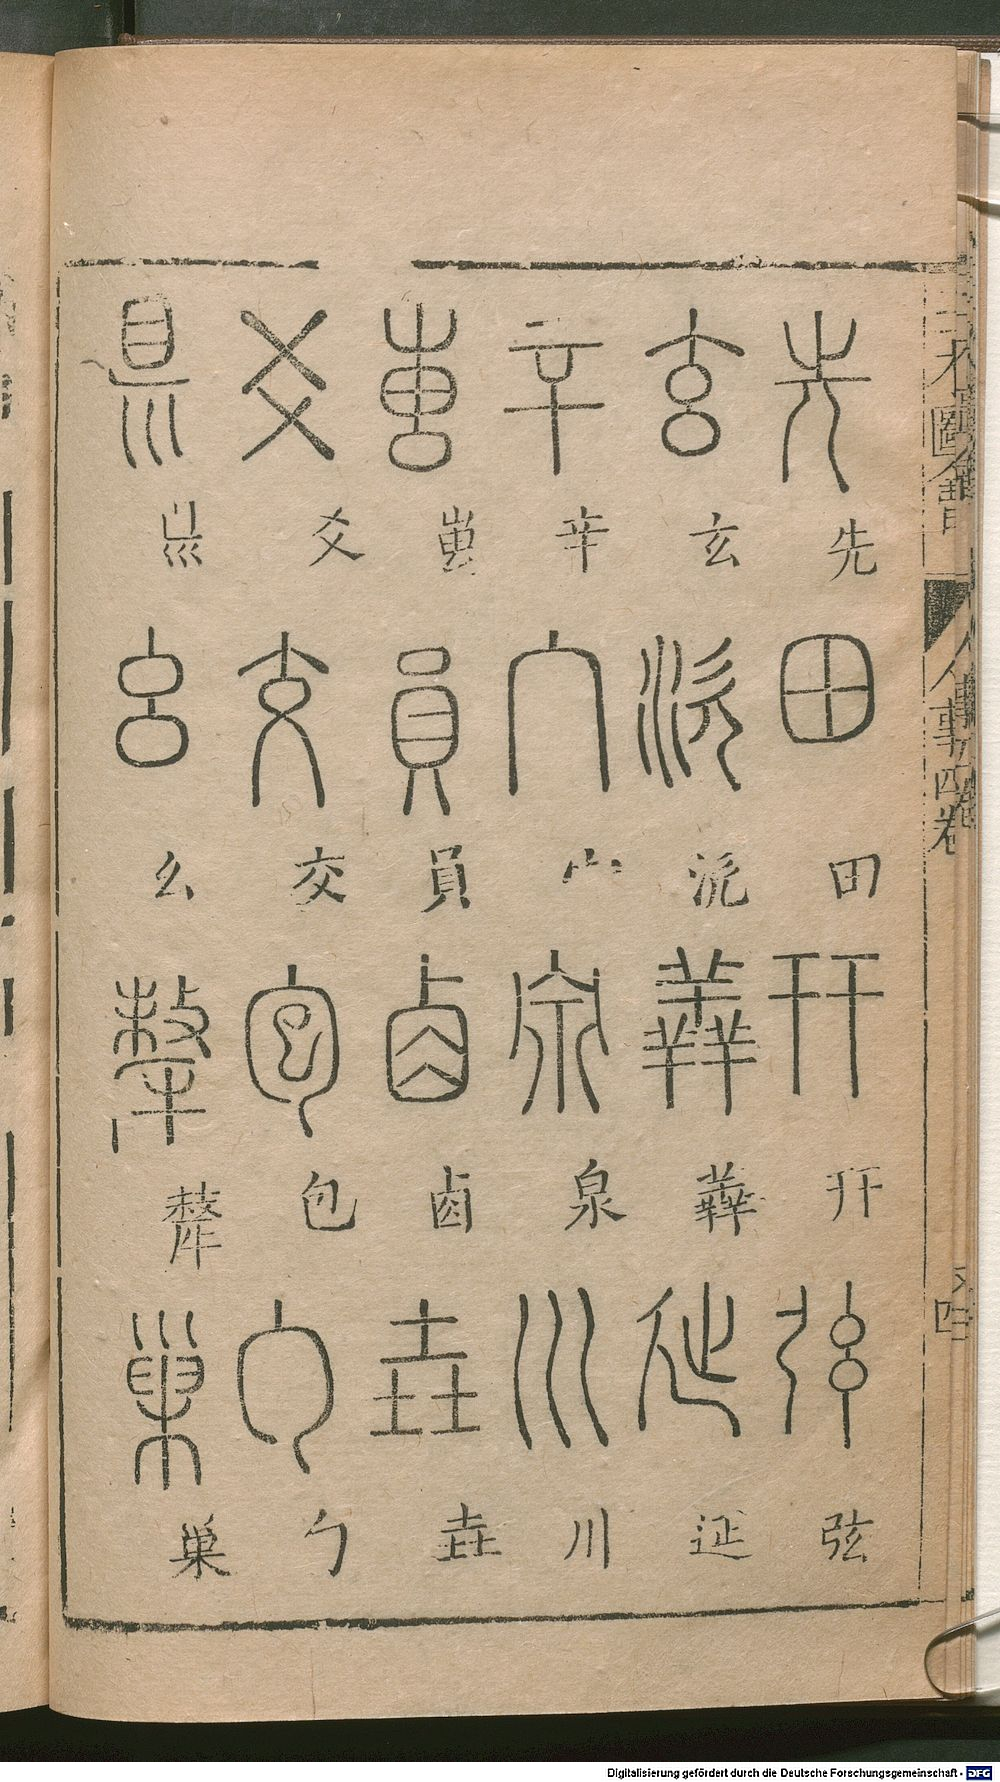 先 田 幵 弦
玄 㳅 蕐 延
辛 宀 泉 川
員 鹵 垚
爻 交 包 勹
幺 犛 巢
三才圖會
人事四卷
Digitalisierung gefördert durch die Deutsche Forschungsgemeinschaft - DFG